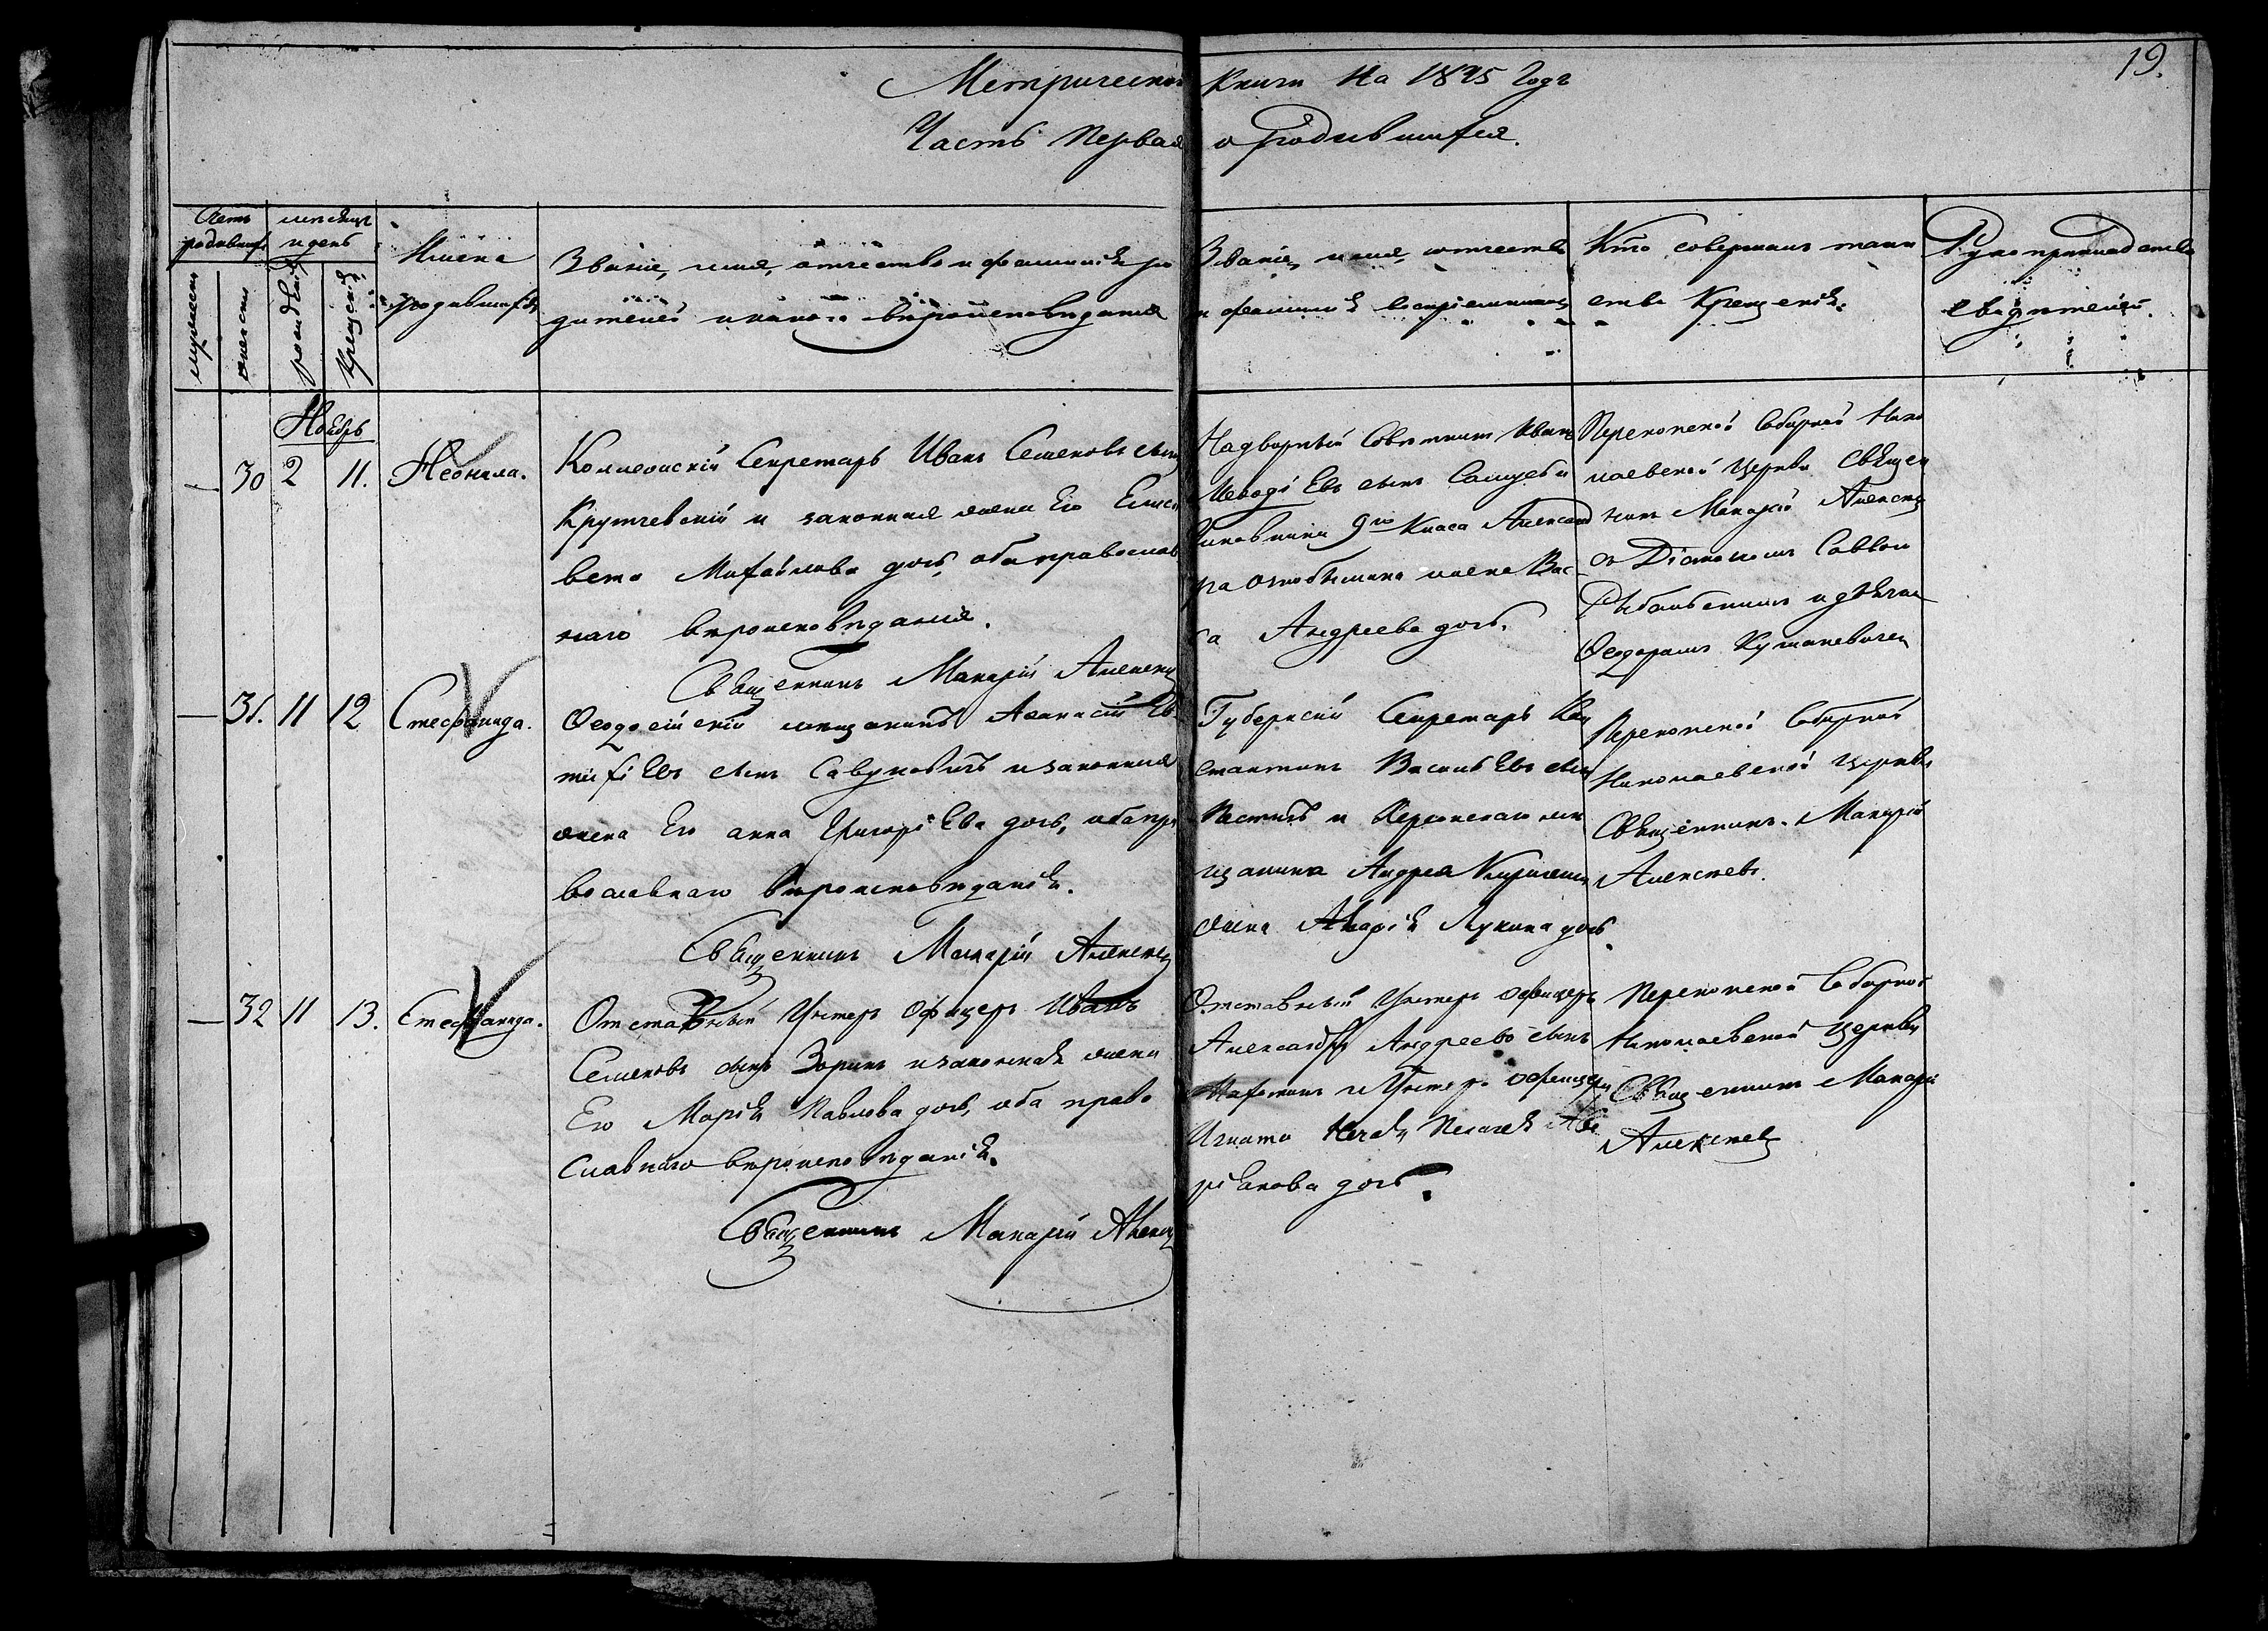 19.
Метрической Книги На 1845 Годъ
Часть Первая о родившихся.
Счетъ родившихся
мѣсяцъ и день
мужеска
женска
рожденія
Крещенія
Имена родившихся
Званіе, имя, отчество и фамилія ро
дителей и какого вѣроисповѣданія
Званіе, имя, отчество
и фамилія воспріемниковъ
Кто совершалъ таин
ство Крещенія.
Рукоприкладство
свидѣтелей.
Ноябрь
— 30 2 11. Неонила.
Коллежскій Секретарь Иванъ Семеновъ сынъ
Крутчевскій и законная жена Его Елиса
вета Михайлова дочь, оба православ
наго вѣроисповѣданія.
Священникъ Макарій Алексеевъ
Надворный Совѣтникъ Иванъ
сынъ
Чиновника 9го Класа Александ
ра жена Вас
са Андреева дочь.
Перекопской Соборной Нико
лаевской Церкви Священ
никъ Макарій Алексеевъ
съ Діакономъ Саввою
и дьячкомъ
Ѳеодоромъ
— 31. 11 12 Стефанида.
Ѳеодосійскій мещанинъ Афанасій Ев
тихіевъ сынъ и законная
жена Его анна Григоріева дочь, оба пра
вославнаго вѣроисповѣданія.
Священникъ Макарій Алексеевъ
Губернскій Секретарь Кон
стантинъ Васильевъ сынъ
и Херсонскаго ме
щанина Андрея
жена Марія Лукина дочь.
Перекопской Соборной
Николаевской Церкви
Священникъ Макарій
Алексеевъ.
— 32 11 13. Стефанида.
Отставный Унтеръ Офицеръ Иванъ
Семеновъ сынъ Зоринъ и законная жена
Его Марія Павлова дочь, оба право
славнаго вѣроисповѣданія.
Священникъ Макарій Алексеевъ
Отставный Унтеръ офицеръ
Александръ Андреевъ сынъ
и Унтеръ офицера
Игната Пелагея
дочь.
Перекопской Соборной
Николаевской Церкви
Священникъ Макарій
Алексеевъ